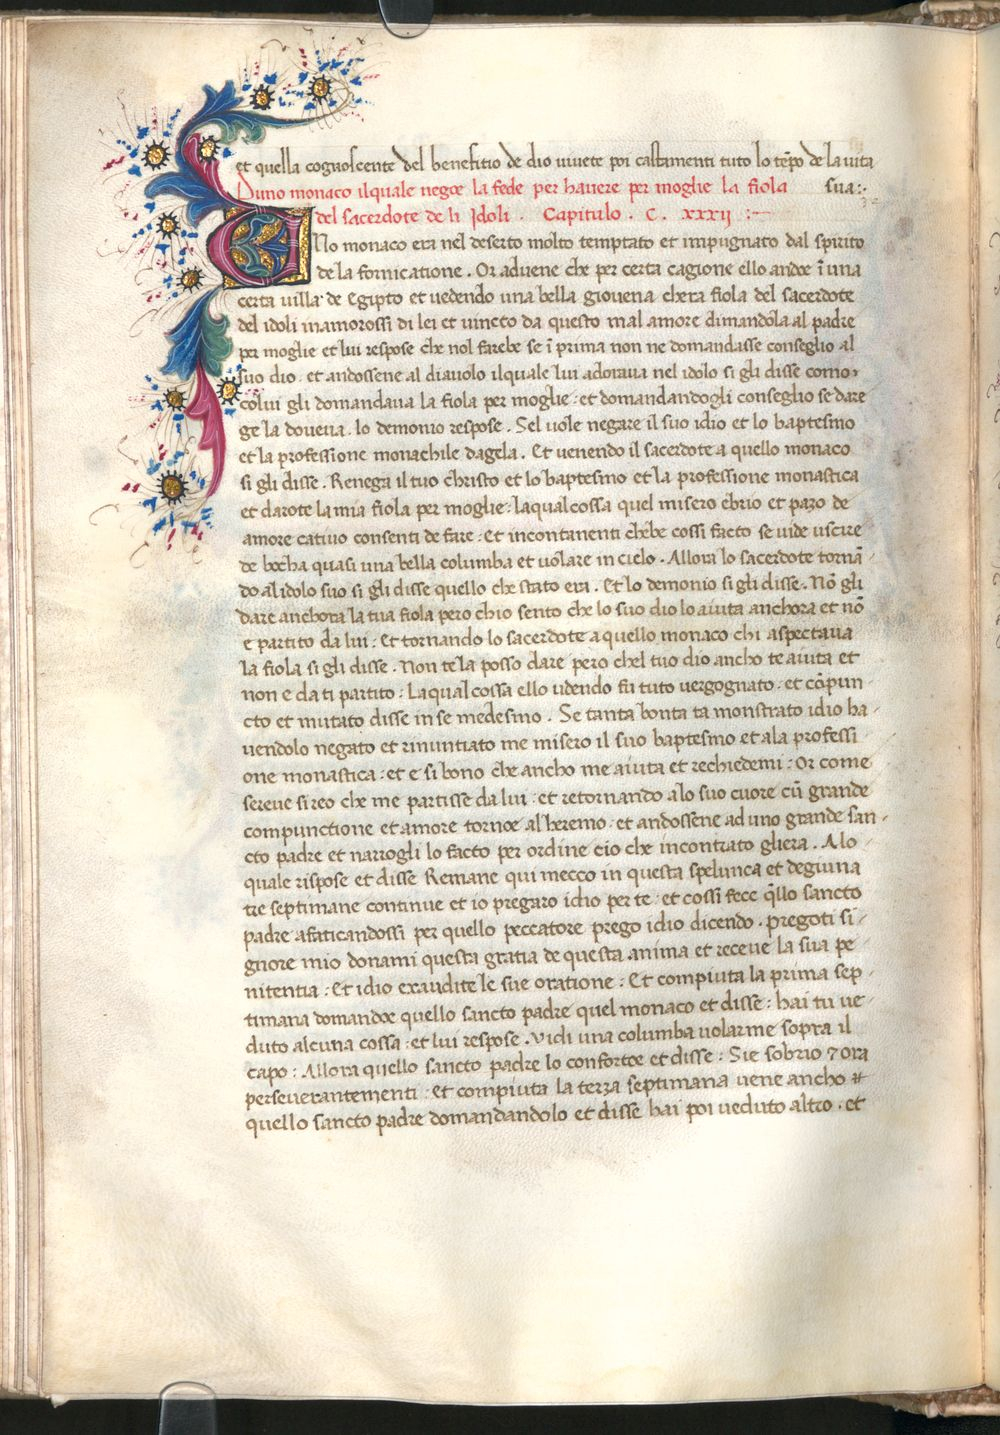 et quella cognoscente del benefitio de dio uiuete poi castamenti tuto lo tēpo de la uita
Duno monaco ilquale negoe la fede per hauere per moglie la fiola sua:.
del sacerdote de li Idoli . Capitulo . C . xxxij :~
UNo monaco era nel deserto molto temptato et impugnato dal spirito
de la fornicatione . Or aduene che per certa cagione ello andoe ī una
certa uilla de Egipto et uedendo una bella giouena chera fiola del sacerdote
del idoli inamorossi di lei et uincto da questo mal amore dimandola al padre
per moglie et lui respose che nol farebe se ī prima non ne domandasse conseglio al
suo dio . et andossene al diauolo ilquale lui adoraua nel idolo si gli disse como
colui gli domandaua la fiola per moglie : et domandandogli conseglio se dare
ge la doueua . lo demonio respose . Sel uole negare il suo idio et lo baptesmo
et la professione monachile dagela . Et uenendo il sacerdote a quello monaco
si gli disse . Renega il tuo christo et lo baptesmo et la professione monastica
et darote la mia fiola per moglie : laqual cossa quel misero ebrio et pazo de
amore catiuo consenti de fare : Et incontanenti chebe cossi facto se uide uscire
de bocha quasi una bella columba et uolare in cielo . Allora lo sacerdote tornā
do al idolo suo si gli disse quello che stato era . Et lo demonio si gli disse . Nō gli
dare anchora la tua fiola pero chio sento che lo suo dio lo aiuta anchora et nō
e partito da lui : Et tornando lo sacerdote a quello monaco chi aspectaua
la fiola si gli disse . Non te la posso dare pero chel tuo dio ancho te aiuta et
non e da ti partito : Laqual cossa ello udendo fu tuto uergognato . et cōpun
cto et mutato disse in se medesmo . Se tanta bonta ta monstrato idio ha-
uendolo negato et rinuntiato me misero il suo baptesmo et ala professi
one monastica : et e si bono che ancho me aiuta et rechiedemi : Or come
sereue si reo che me partisse da lui : et retornando alo suo cuore cū grande
compunctione et amore tornoe al heremo . et andossene ad uno grande san-
cto padre et narrogli lo facto per ordine cio che incontrato gliera . A lo
quale rispose et disse Remane qui mecco in questa spelunca et degiuna
tre septimane continue et io pregaro idio per te : et cossi fece q̄llo sancto
padre afaticandossi per quello peccatore prego idio dicendo . pregoti si-
gnore mio donami questa gratia de questa anima et receue la sua pe-
nitentia : Et idio exaudite le sue oratione : Et compiuta la prima sep-
timana domandoe quello sancto padre quel monaco et disse : hai tu ue-
duto alcuna cossa : et lui respose . Vidi una columba uolarme sopra il
capo : Allora quello sancto padre lo confortoe et disse : Sie sobrio 7 ora
perseuerantementi : et compiuta la terza septimana uene ancho a
quello sancto padre domandandolo et disse hai poi ueduto altro . et